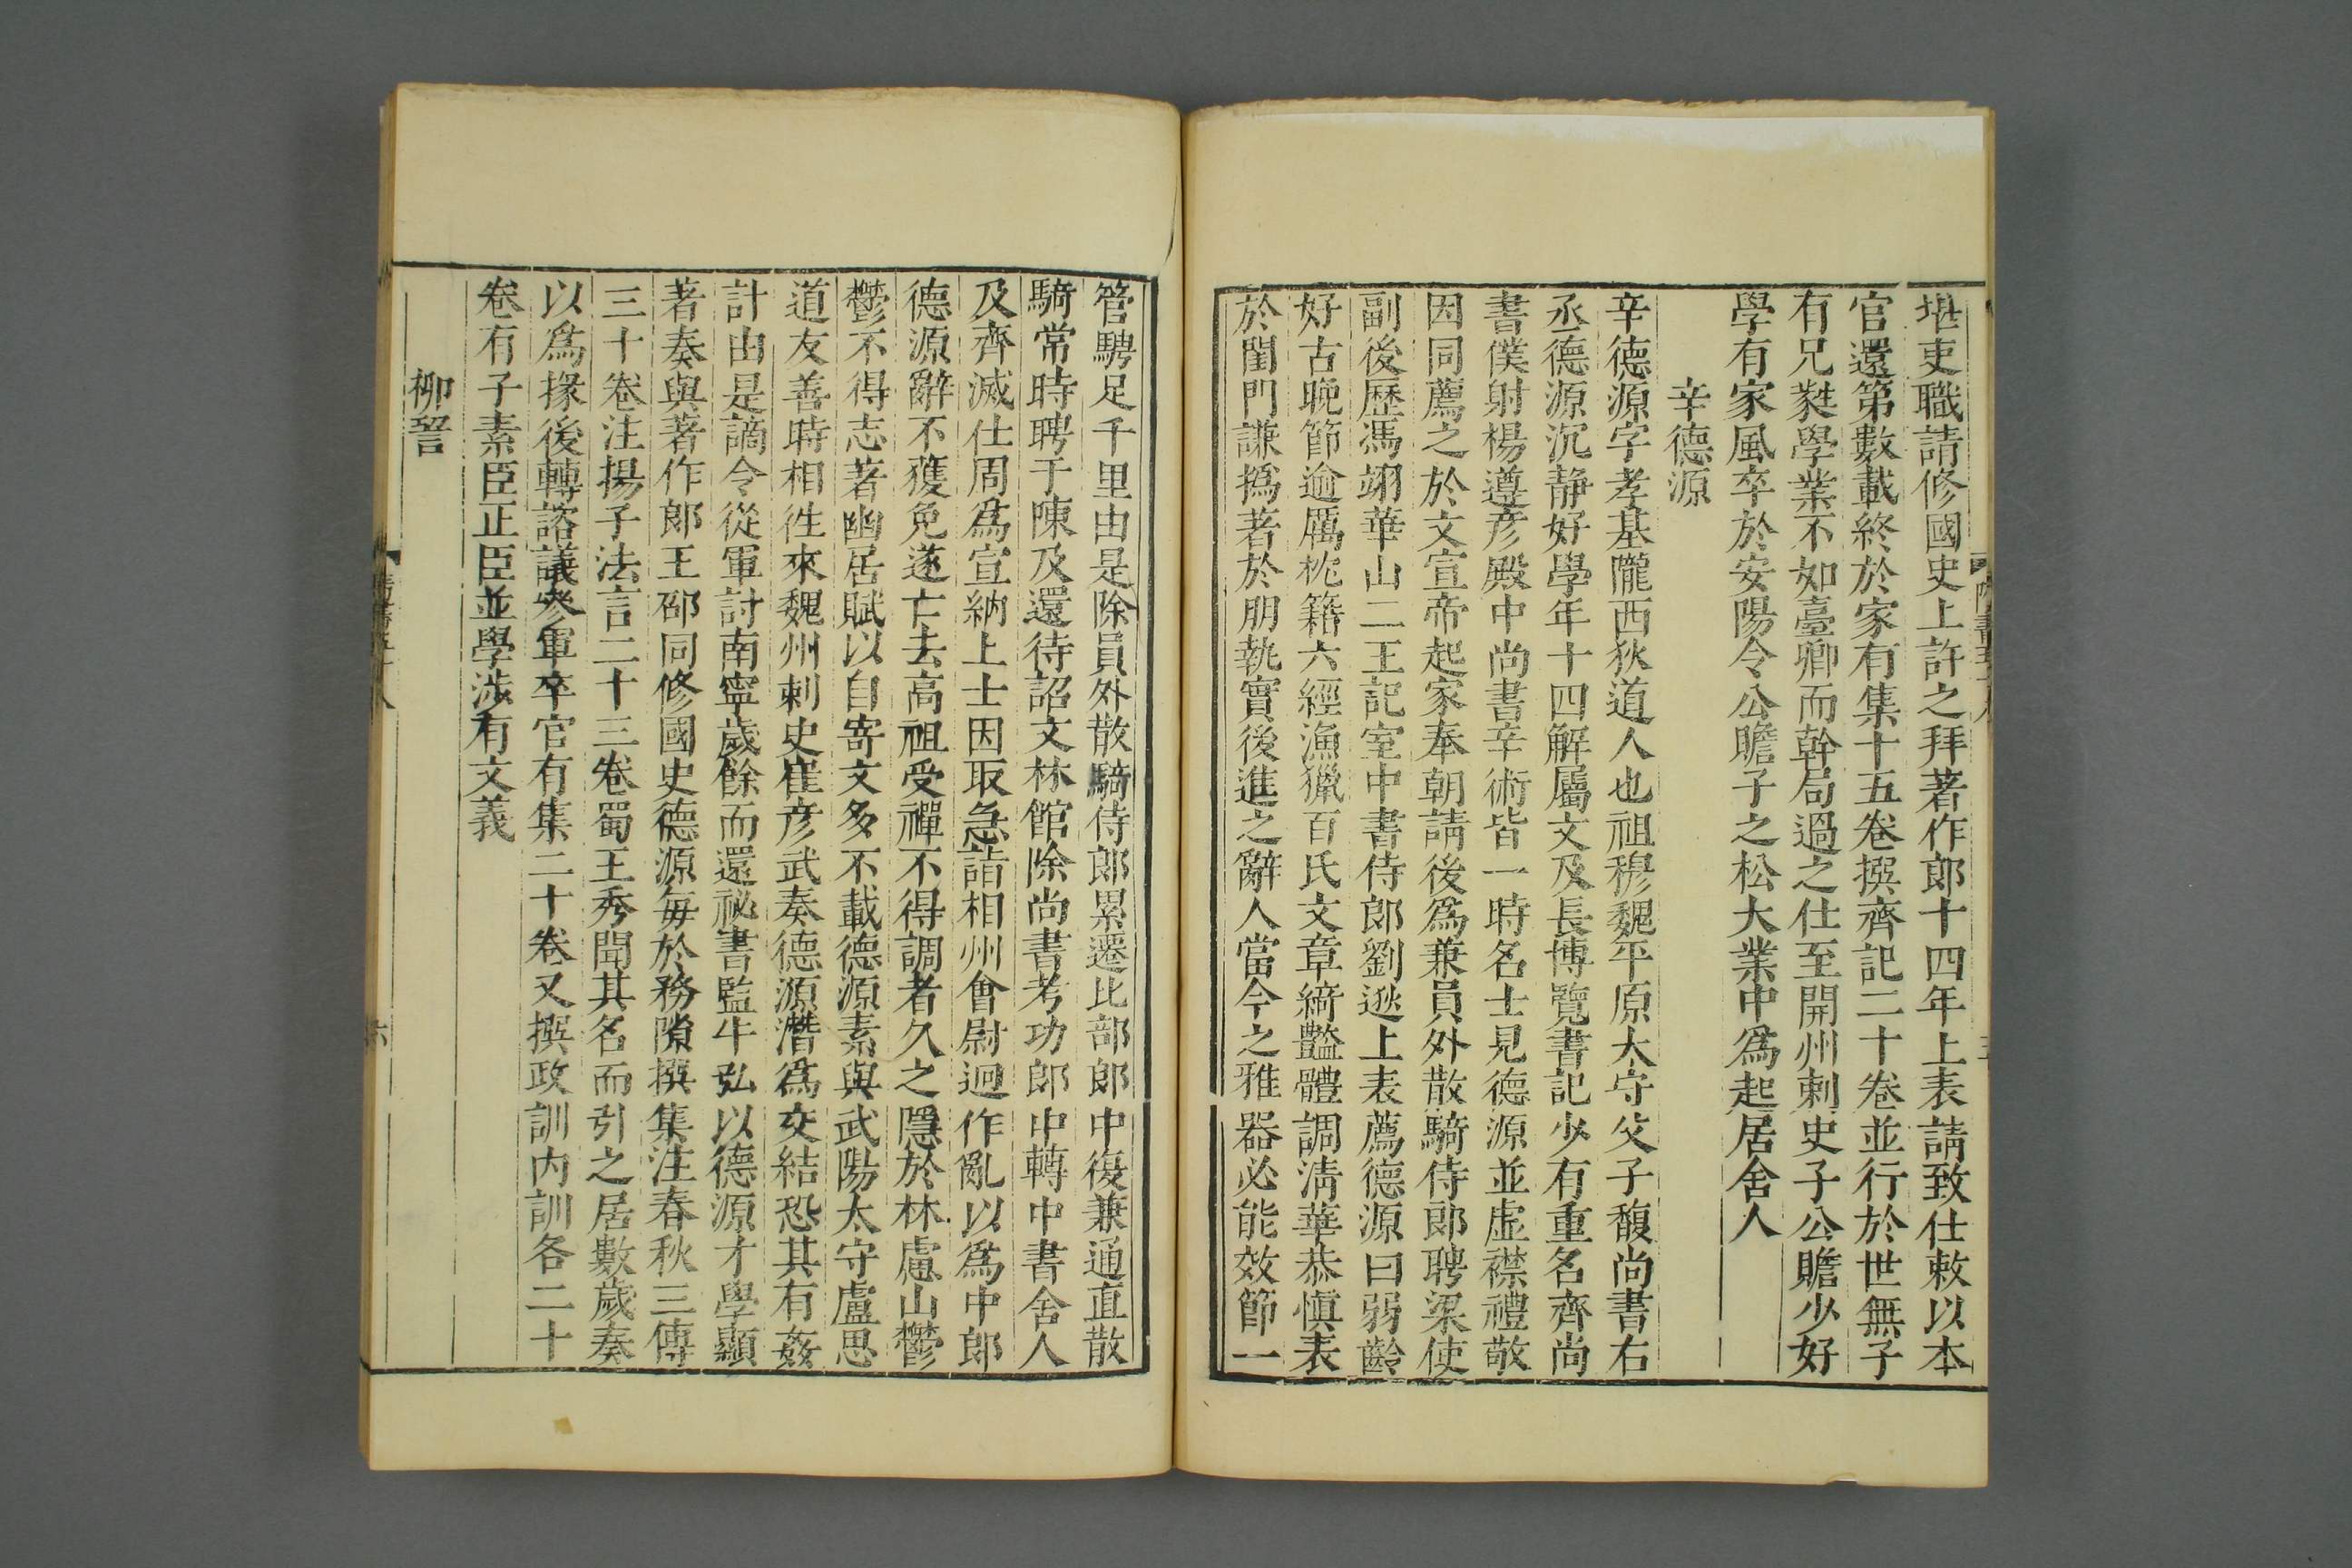 堪吏職請修國史上許之拜著作郎十四年上表請致仕敕以本
官還第數載終於家有集十五卷撰齊記二十卷並行於世無子
有兄蕤學業不如臺卿而幹局過之仕至開州刺史子公贍少好
學有家風卒於安陽令公贍子之松大業中為起居舍人
辛德源
辛德源字孝基隴西狄道人也祖穆魏平原太守父子馥尚書右
丞德源沉靜好學年十四解屬文及長博覽書記少有重名齊尚
書僕射楊遵彥殿中尚書辛術皆一時名士見德源並虛襟禮敬
因同薦之於文宣帝起家奉朝請後為兼員外散騎侍郎聘梁使
副後歷馮翊華山二王記室中書侍郎劉逖上表薦德源曰弱齡
好古晚節逾厲枕籍六經漁獵百氏文章綺豔體調清華恭慎表
於閨門謙撝著於朋執實後進之辭人當今之雅器必能效節一
管騁足千里由是除員外散騎侍郎累遷比部郎中復兼通直散
騎常時聘于陳及還待詔文林館除尚書考功郎中轉中書舍人
及齊滅仕周為宣納上士因取急詣相州會尉迥作亂以為中郎
德源辭不獲免遂亡去高祖受禪不得調者久之隱於林慮山鬱
鬱不得志著幽居賦以自寄文多不載德源素與武陽太守盧思
道友善時相往來魏州刺史崔彥武奏德源潛為交結恐其有姦
計由是謫令從軍討南寧歲餘而還祕書監牛弘以德源才學顯
著奏與著作郎王劭同修國史德源每於務隙撰集注春秋三傳
三十卷注揚子法言二十三卷蜀王秀聞其名而引之居數歲奏
以為掾後轉諮議參軍卒官有集二十卷又撰政訓內訓各二十
卷有子素臣正臣並學涉有文義
柳䛒
隋書五十八
六